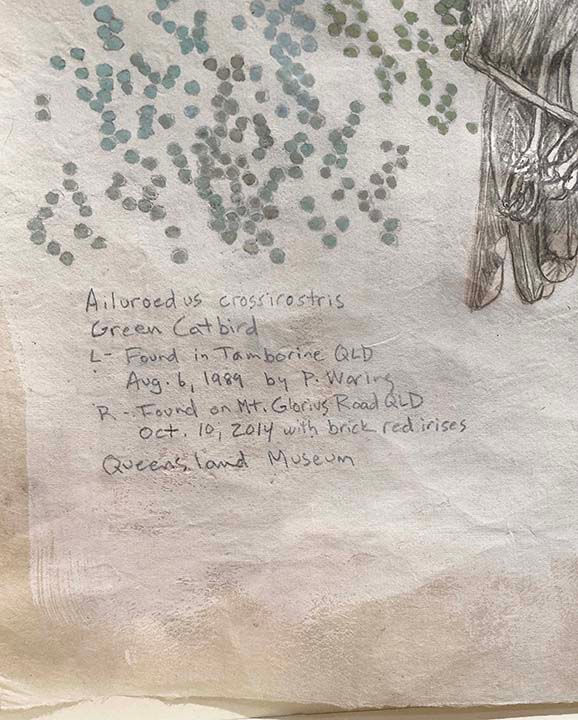 Ailuroedus crossirostris
Green Catbird
L- Found in Tamborine QLD
Aug. 6, 1989 by P. Waring
R - Found on Mt. Glorius Road QLD
Oct. 10, 2014 with brick red irises
Queensland Museum